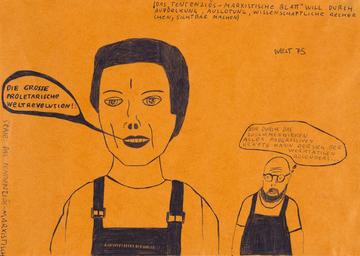 (DAS „TENDENZIÖS-MARXISTISCHE BLATT" WILL DURCH
AUFDECKUNG, AUSLOTUNG, WISSENSCHAFTLICHE RECHER
CHEN, SICHTBAR MACHEN)
WELT 75
DIE GROSSE
PROLETARISCHE
WELTREVOLUTION!!
NUR DURCH DAS
ZUSAMMENWIRKEN
ALLER PROGRESSIVEN
KRÄFTE KANN DER SIEG DER
WERKTÄTIGEN